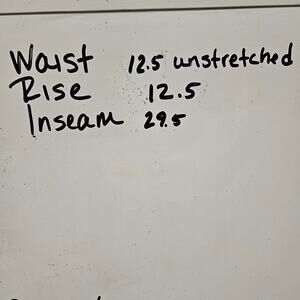 Waist 12.5 unstretched
Rise 12.5
Inseam 29.5